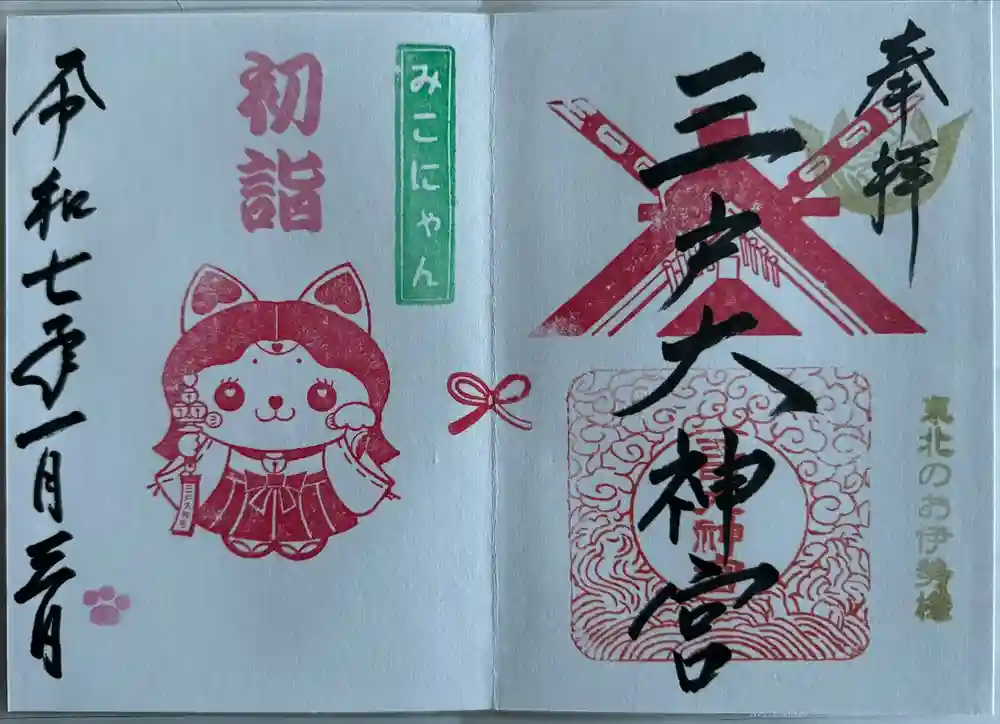 奉拝
三戸大神宮
東北のお伊勢様
みこにゃん
初詣
三戸大神宮
令和七年一月三日